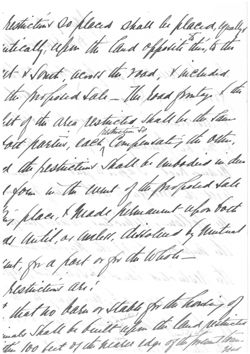 restrictions so placed shall be placed, equally &
identically upon the land opposite to this, to the
& South, across the road, & included
the proposed sale — The road frontg. & the
of the area restricted shall be the same
parties, each restriction so compensating the other,
the restrictions shall be embodied in
form in the event of the proposed sale
place, & made permanent upon both
until, or unless, dissolved by mutual
for a part or for the whole —
restrictions are:
that no barn or stable for the housing of
shall be built upon the land restricted
100 feet of the nearer edge of the present